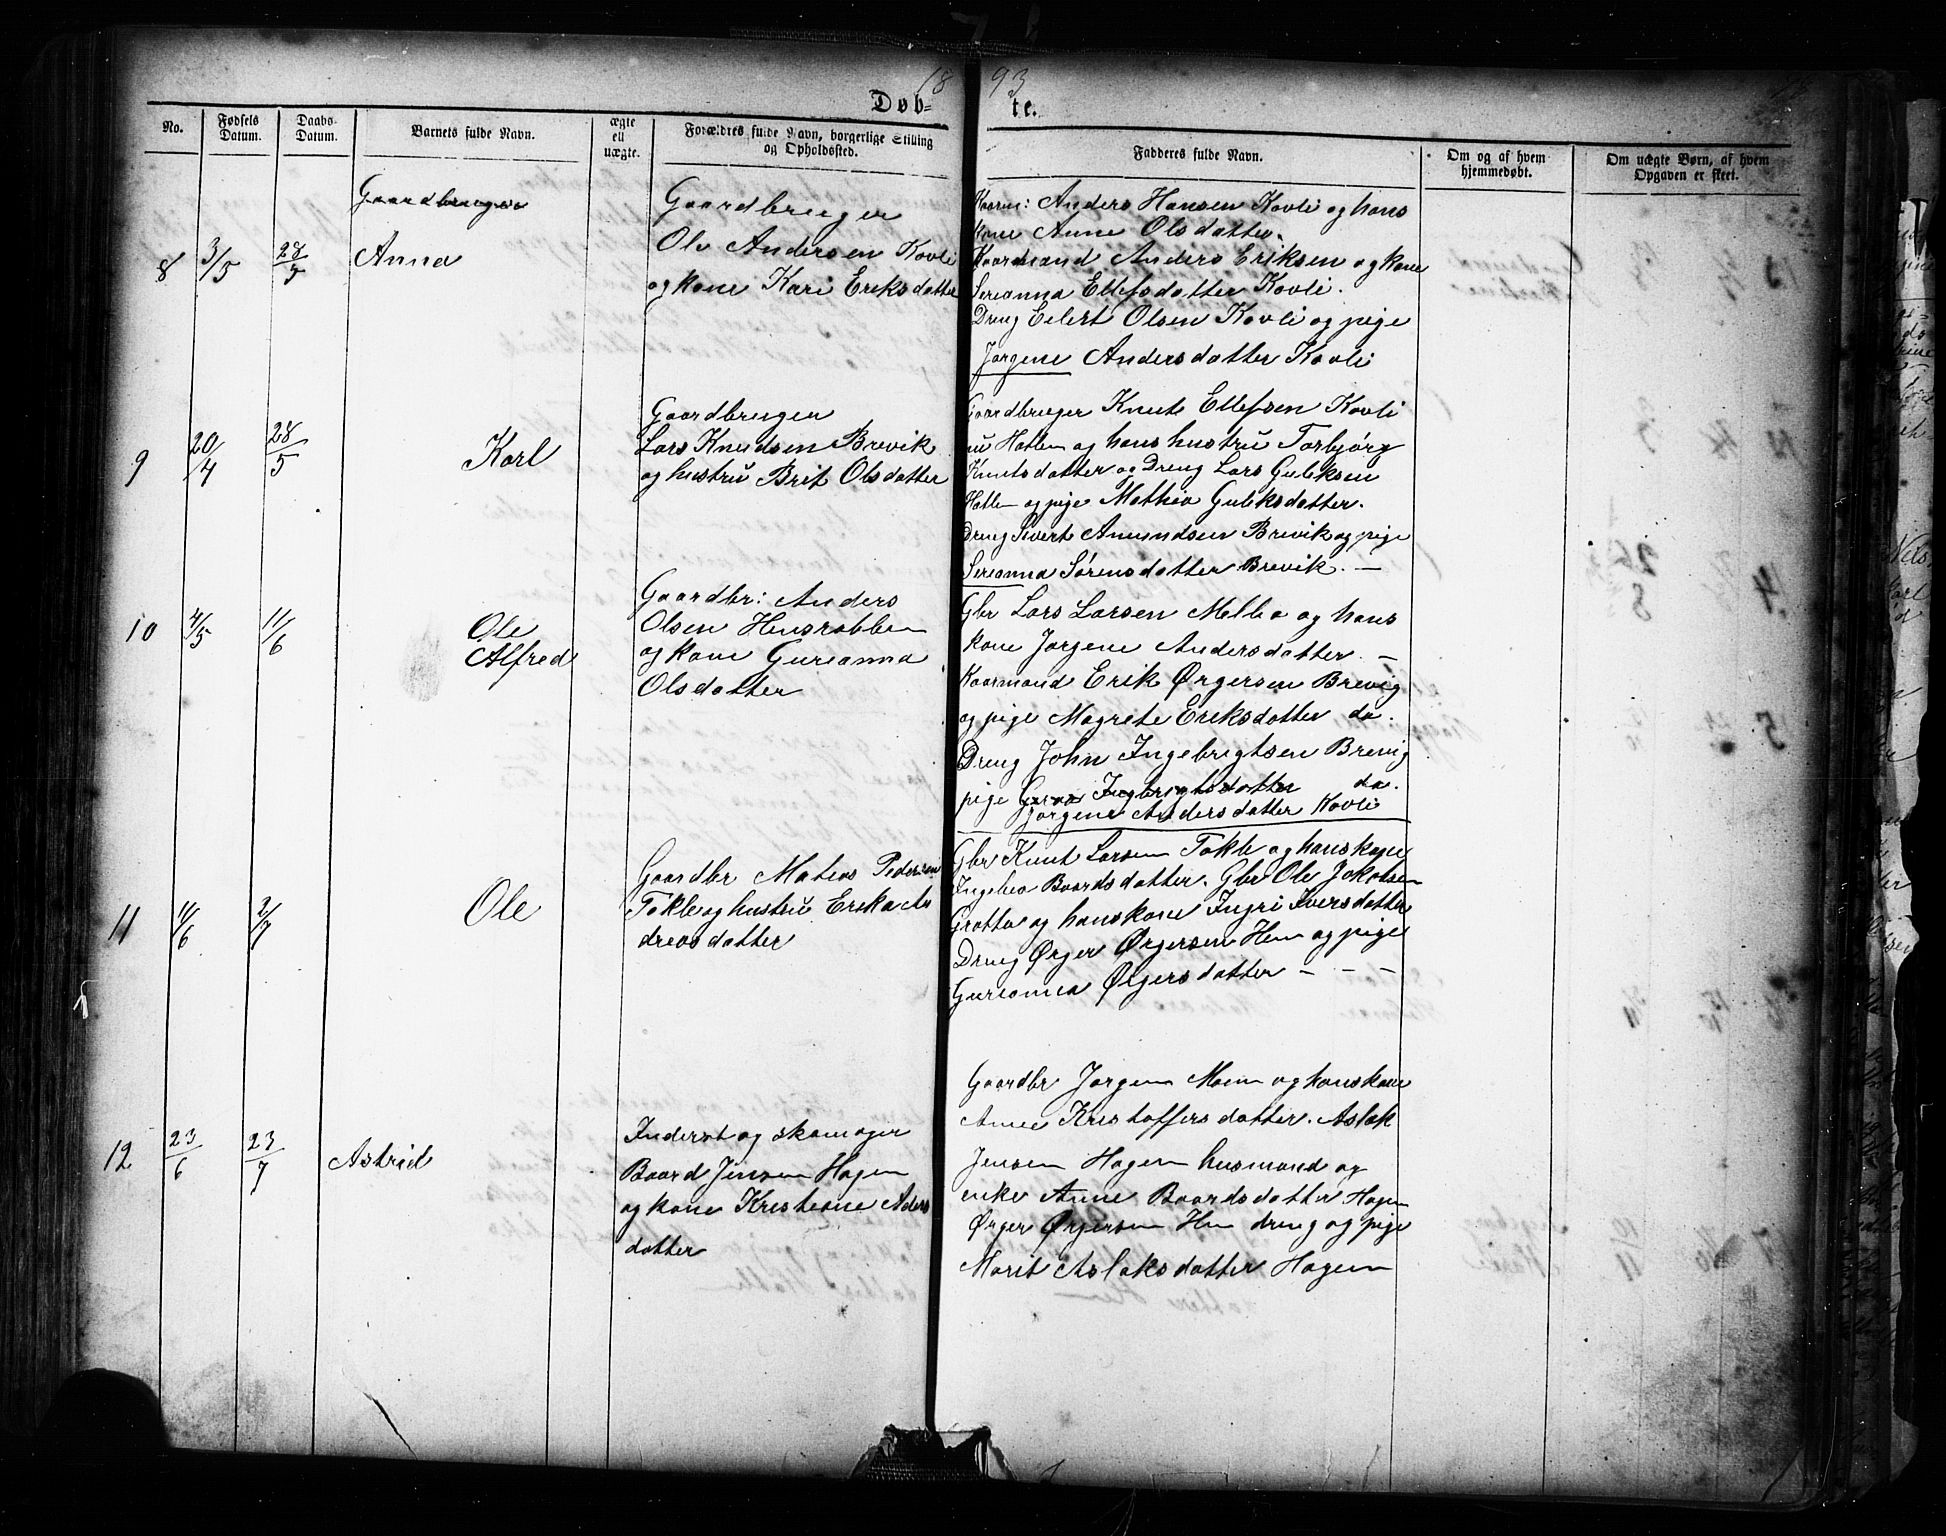 18 93
Døb= te.
No.
Fødsels Datum.
Daabs- Datum.
Barnets fulde Navn.
ægte ell uægte.
Forældres fulde Navn, borgerlige Stilling og Opholdssted.
Fadderes fulde Navn.
Om og af hvem hjemmedøbt.
Om uægte Børn, af hvem Opgaven er skeet.
Gaardbruger
8 3/5 28/5 Anna
Gaardbruger
Ole Andersen Kovli
og kone Kari Eriksdatter
Kaarm: Anders Hansen Kovli og hans
kone Anne Olsdatter.
Kaarmand Anders Eriksen og kone
Serianna Ellefsdatter Kovli.
Dreng Eilert Olsen Kovli og pige
Jørgene Andersdatter Kovli
9 20/4 28/5 Karl
Gaardbruger
Lars Knudsen Brevik
og hustru Brit Olsdatter
Gaardbruger Knut Ellefsen Kovli
nu Hatlen og hans hustru Torbjørg
Knutsdatter og Dreng Lars Guliksen
Hatlen og pige Mathea Guliksdatter.
Dreng Sivert Amundsen Brevik og pige
Serianna Sørensdatter Brevik. —
10 4/5 11/6 Ole
Alfred
Gaardbr: Anders
Olsen Hensrabben
og kone Gurianna
Olsdatter
Gbr Lars Larsen Melbø og hans
kone Jørgene Andersdatter. —
Kaarmand Erik Ørgersen Brevig
og pige Magrete Eriksdatter do.
Dreng John Ingebrigtsen Brevig
pige Ingbrigtsdatter do.
Jørgene Andersdatter Kovli
11 11/6 2/7 Ole
Gaardbr Matias Pedersen
Takle og hustru Erika An
dreasdatter
Gbr Knut Larsen Takle og hans kone
Ingebor Baardsdatter. Gbr Ole Jakobsen
Grøtta og hans kone Ingri Iversdatter
Dreng Ørger Ørgersen Hem og pige
Gurianna Ørgersdatter — — —
12 23/6 23/7 Astrid
Inderst og skomager
Baard Jensen Hagen
og kone Kristiane Aders
datter
Gaardbr Jørgen Moen og hans kone
Anne Kristoffersdatter. Aslak
Jensen Hagen husmand og
enke Anne Baardsdatter Hagen
Ørger Ørgersen Hem dreng og pige
Marit Aslaksdatter Hagen